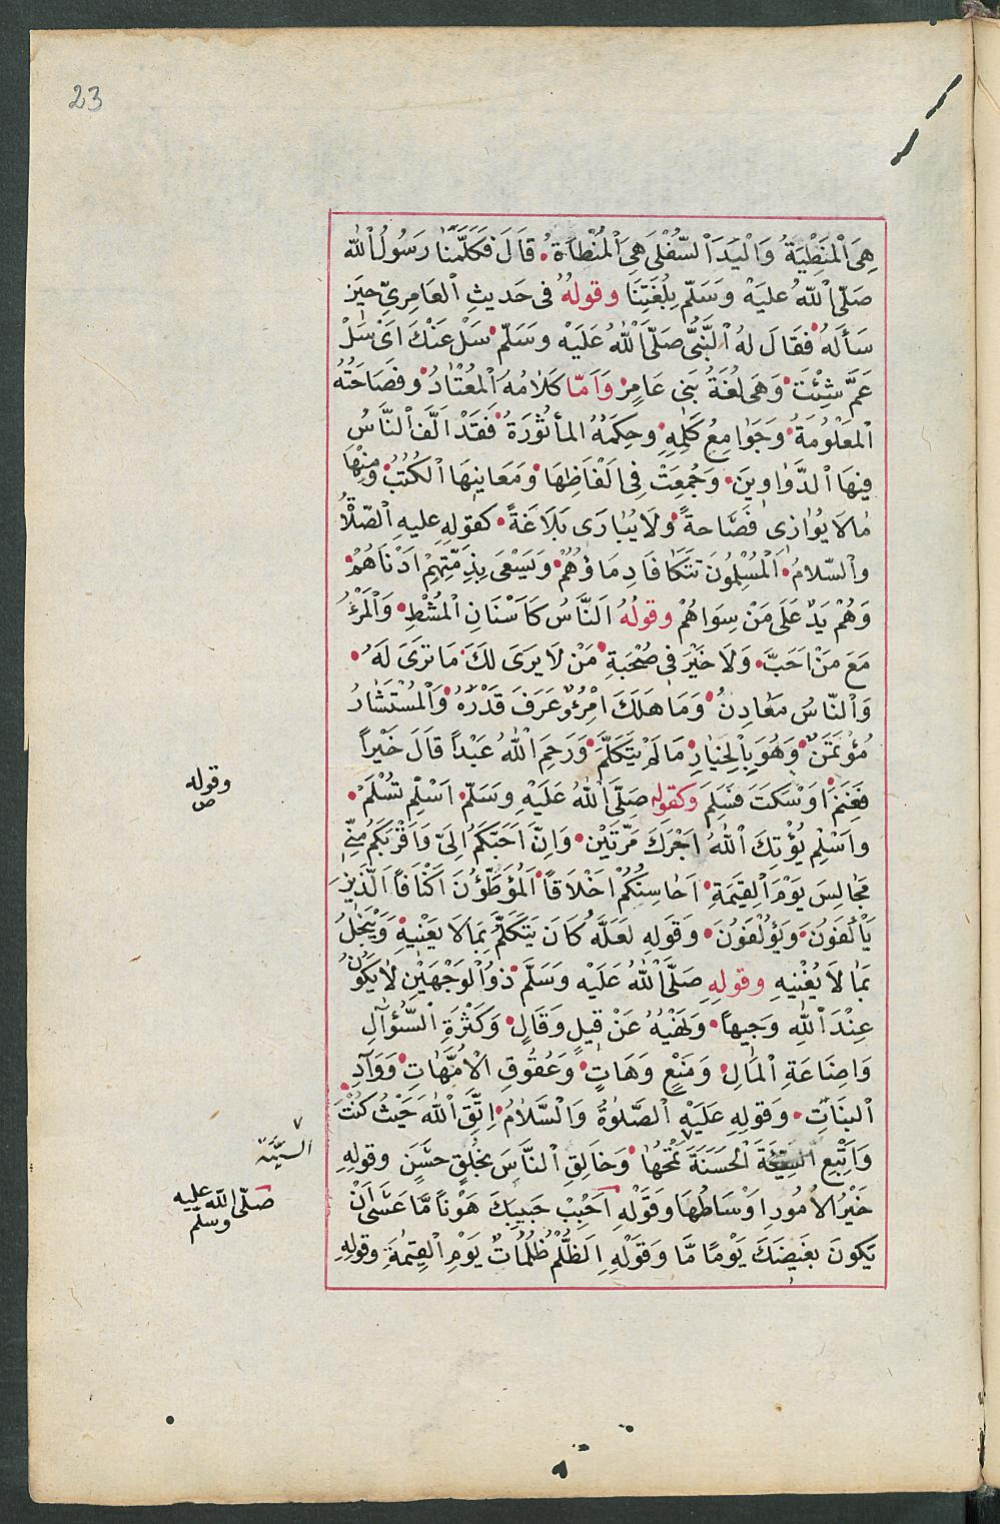 23
هِيَ الْمُنْطِيَةُ وَالْيَدَ السُّفْلَى هِيَ الْمُنْطَاةُ قَالَ فَكَلَّمَنَا رَسُولُ اللّٰه
صَلَّى اللّٰهُ عَلَيْهِ وَسَلَّمَ بِلُغَتِنَا وقولهُ فى حَديثِ العَامِرِيِّ حِينَ
سَأَلَهُ فَقَالَ لهُ النَّبِىُّ صَلَّى اللّٰهُ عَلَيْهِ وَسَلَّمَ سَلْ عَنْكَ اَىْ سَلْ
عَمَّ شِئْتَ وَهَى لُغَةُ بَنِى عَامِرٍ وَاَمّا كَلَامُهُ الْمُعْتَادُ وفصَاحَتُهُ
الْمَعْلُومَةُ وَجَوَامِعُ كَلِمِهِ وحِكَمُهُ المأثُورَةُ فَقَدْ اَلَّفَ النَّاسُ
فِيهَا الدَّوَاوِينَ وَجُمِعَتْ فِى اَلْفَاظِهَا وَمَعَانِيهَا الْكُتُبُ وَمِنْهَا
مَالَا يُوَازَى فَصَاحةً ولَا يُبَارَى بَلَاغَةً كقولِهِ عليهِ الصّلٰاةُ
والسّلامُ اَلْمُسْلِمُونَ تَتَكَافَا دِمَاؤُهُمْ وَيَسْعَى بِذِمَّتِهِمْ اَدْنَاهُمْ
وَهُمْ يَدٌ عَلَى مَنْ سِوَاهُمْ وقولُهُ النَّاسُ كَاَسْنَانِ الْمُشْطِ وَالْمَرْءُ
مَعَ مَنْ اَحَبَّ وَلَا خَيْرَ فى صُحْبَةِ مَنْ لَا يَرَى لكَ مَا تَرَى لَهُ
وَالنَّاسُ مَعَادِنُ وَمَا هَلَكَ امْرُؤٌ عَرَفَ قَدْرَهُ وَالْمُسْتَشَارُ
مُؤْتَمَنٌ وَهُوَ بِالْخِيَارِ مَا لَمْ يَتَكَلَّمْ وَرَحِمَ اللّٰهُ عَبْداً قَالَ خَيْراً
فَغَنِمَ اَوْ سَكَتَ فَسَلِمَ وكقوله صَلَّى اللّٰهُ عَلَيْهِ وَسَلّمَ اَسْلِمْ تَسْلَمْ
وَاَسْلِمْ يُؤْتِكَ اللّٰهُ اَجْرَكَ مَرَّتَيْنِ وَاِنَّ اَحَبَّكُمْ اِلَىَّ وَاَقْرَبَكُمْ مِنِّى
مَجَالِسَ يَوْمَ الْقِيَمَةِ اَحَاسِنُكُمْ اَخْلَاقاً الْمُوَطَّؤُنَ اَكْنَافاً الَّذِينَ
يَأْلَفُونَ وَيُؤْلَفُونَ وَقَوله لَعَلَّهُ كَانَ يَتَكَلَّمُ بِمَا لَا يَعْنِيهِ وَيَبْخَلُ
بِمَا لَا يُغْنِيهِ وقولهِ صَلَّى اللّٰهُ عَلَيْهِ وَسَلَّمَ ذُو الْوَجْهَيْنِ لَا يَكُونُ
عِنْدَ اللّٰهِ وَجِيهاً وَنَهْيُهُ عَنْ قيلٍ وَقَالٍ وَكَثْرَةِ السُّؤَآلِ
وَاِضَاعَةِ الْمَالِ وَمَنْعٍ وَهَاتٍ وَعُقُوقِ الْاُمَّهَاتِ وَوَأْدِ
الْبَنَاتِ وَقولِهِ عَلَيْهِ الصَّلوٰةُ وَالسَّلَامُ اِتَّقِ اللّٰهَ حَيْثُ كُنْتَ
وَاَتْبِعِ السَّيِّئَةَ الْحَسَنَةَ تَمْحُهَا وَخَالِقِ النَّاسَ بِخُلُقٍ حَسَنٍ وقولِهِ
خَيْرُ الاُمُورِ اَوْسَاطُهَا وَقَوْلِهِ اَحْبِبْ حَبِيبَكَ هَوْناً مَّا عَسَى اَنْ
يَكُونَ بَغِيضَكَ يَوْمًا مَّا وَقَوْلِهِ اَلظُّلْمُ ظُلُمَاتٌ يَوْمَ الْقِيمَةِ وقولِهِ
وقوله
ص
السَّيِّئَةَ
صَلَّى اللّٰه عليه
وسلّم